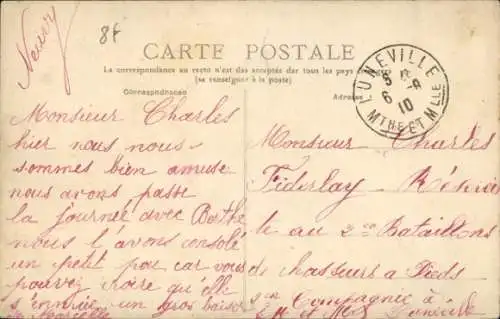 Neuvy
8f
CARTE POSTALE
La correspondance au recto n'est pas acceptée par tous les pays
(se renseigner à la poste)
Correspondance
Adresse
LUNEVILLE
6 10
MTHE ET MLLE
Monsieur Charles
hier nous nous
sommes bien amuse
nous avons passe
la journée avec Berthe
nous l'avons consolé
un petit peu car vous
pouvez croire qu'elle
s'ennuie un gros baiser
Marcelle
Monsieur Charles
au 2me Bataillons
de chasseurs a Pieds
Compagnie a
Lunéville